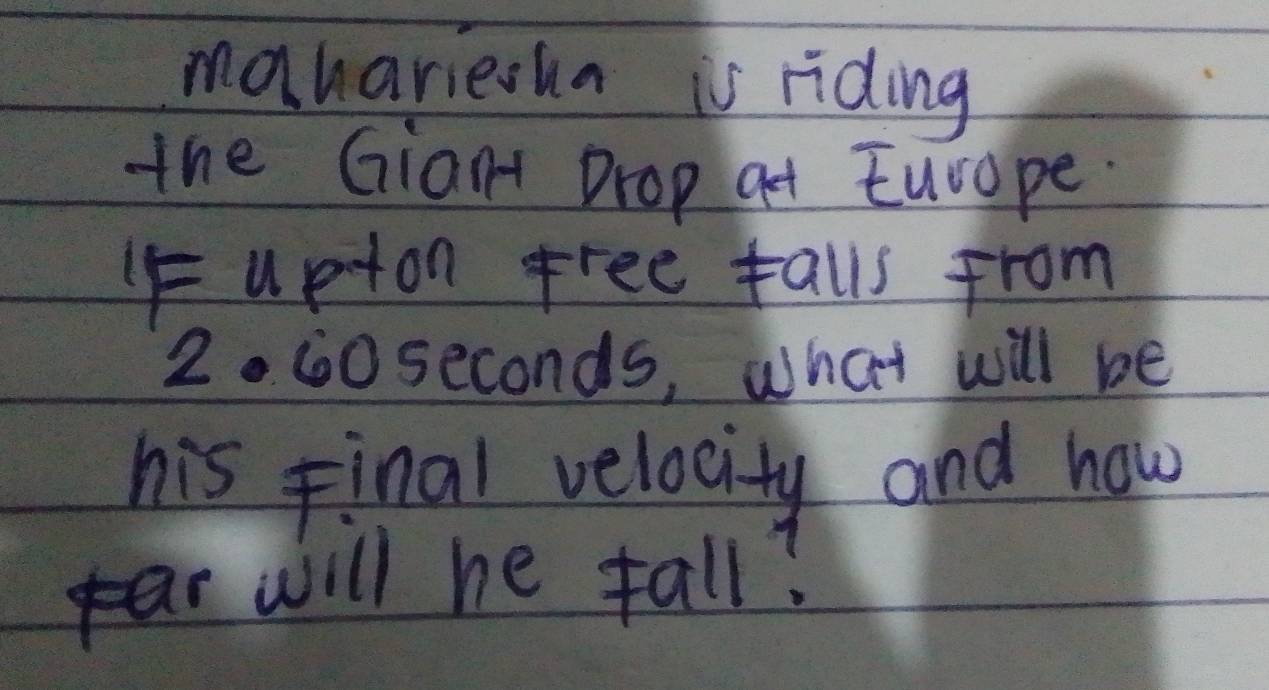 Maharieska is riding
the Giant Drop at Europe.
If upton free falls from
2.60 seconds, what will be
his final velocity and how
far will he fall?